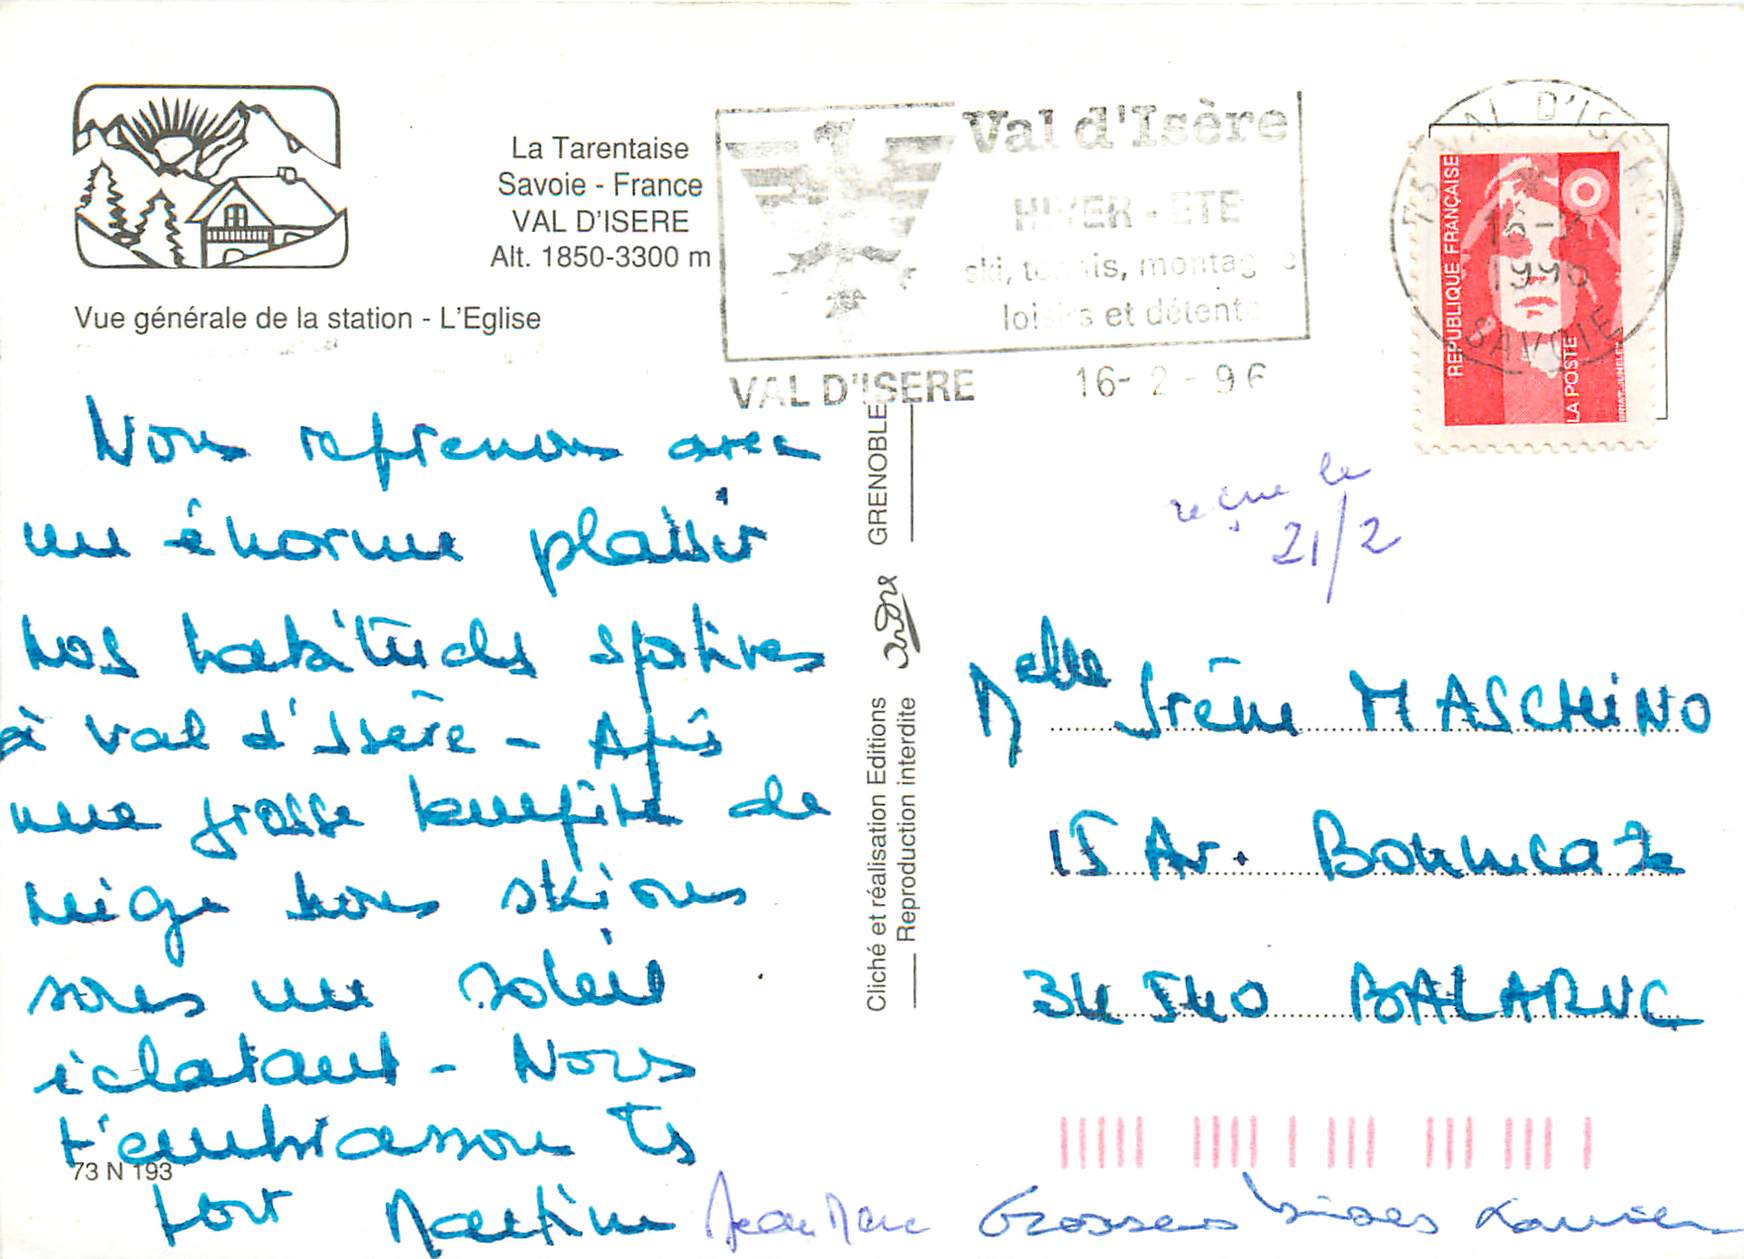 La Tarentaise
Savoie - France
VAL D'ISERE
Alt. 1850-3300 m
Vue générale de la station - L'Eglise
Val d'Isère
HIVER - ETE
ski, tennis, montagne
loisirs et détente
VAL D'ISERE 16-2-96
VAL D'ISERE
16-2
1996
SAVOIE
REPUBLIQUE FRANÇAISE
LA POSTE
Nous reprenons avec
un énorme plaisir
nos habitudes sportives
à Val d'Isère - Après
une grosse tempête de
neige nous skions
sous un soleil
éclatant - Nous
t'embrassons Ts
fort Martine Jean Marc Grosses bises
73 N 193
GRENOBLE
Cliché et réalisation Editions
Reproduction interdite
reçue le
21/2
Melle Irène MASCHINO
15 Av. Bonnecaze
34540 BALARUC